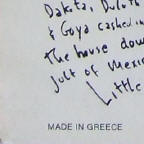 Dakota, Duluth
& Goya cashed in
the house dow
jolt of Mexic
Little
MADE IN GREECE